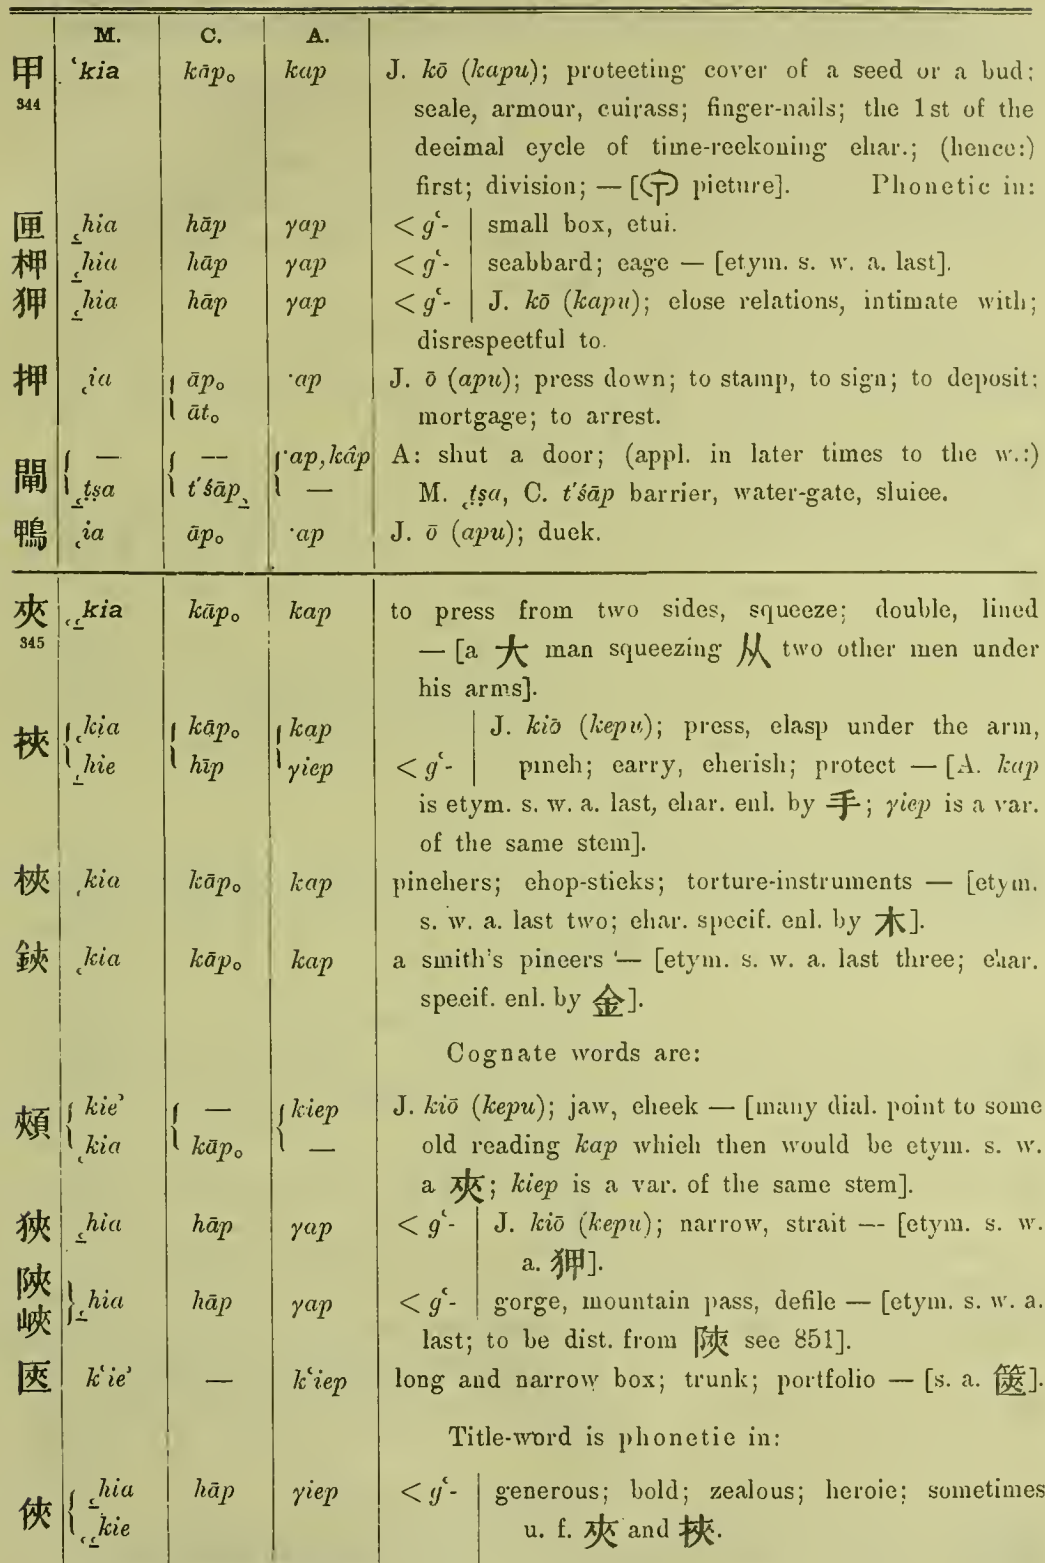 M. C. A.
甲 ʿkia kāp₀ kap J. kō (kapu); protecting cover of a seed or a bud;
344 scale, armour, cuirass; finger-nails; the 1st of the
decimal cycle of time-reckoning char.; (hence:)
first; division; — [ picture]. Phonetic in:
匣 ₍hia hāp γap < gʿ- small box, etui.
柙 ₍hia hāp γap < gʿ- scabbard; cage — [etym. s. w. a. last].
狎 ₍hia hāp γap < gʿ- J. kō (kapu); close relations, intimate with;
disrespectful to.
押 ₍ia { āp₀ ·ap J. ō (apu); press down; to stamp, to sign; to deposit;
āt₀ mortgage; to arrest.
閘 { — { — { ·ap, kâp A: shut a door; (appl. in later times to the w.:)
₍tṣa t'śāp — M. ₍tṣa, C. t'śāp barrier, water-gate, sluice.
鴨 ₍ia āp₀ ·ap J. ō (apu); duck.
夾 ₍kia kāp₀ kap to press from two sides, squeeze; double, lined
345 — [a 大 man squeezing 从 two other men under
his arms].
挾 { ₍kia { kāp₀ { kap J. kiō (kepu); press, clasp under the arm,
₍hie hīp γiep < gʿ- pinch; carry, cherish; protect — [A. kap
is etym. s. w. a. last, char. enl. by 手; γiep is a var.
of the same stem].
梜 ₍kia kāp₀ kap pinchers; chop-sticks; torture-instruments — [etym.
s. w. a. last two; char. specif. enl. by 木].
鋏 ₍kia kāp₀ kap a smith's pincers — [etym. s. w. a. last three; char.
specif. enl. by 金].
Cognate words are:
頰 { kieʾ { — { kiep J. kiō (kepu); jaw, cheek — [many dial. point to some
₍kia kāp₀ — old reading kap which then would be etym. s. w.
a 夾; kiep is a var. of the same stem].
狹 ₍hia hāp γap < gʿ- J. kiō (kepu); narrow, strait — [etym. s. w.
a. 狎].
陝
峽 } ₍hia hāp γap < gʿ- gorge, mountain pass, defile — [etym. s. w. a.
last; to be dist. from 陜 see 851].
匧 kʿieʾ — kʿiep long and narrow box; trunk; portfolio — [s. a. 篋].
Title-word is phonetic in:
俠 { ₍hia hāp γiep < gʿ- generous; bold; zealous; heroic; sometimes
₍kie u. f. 夾 and 挾.